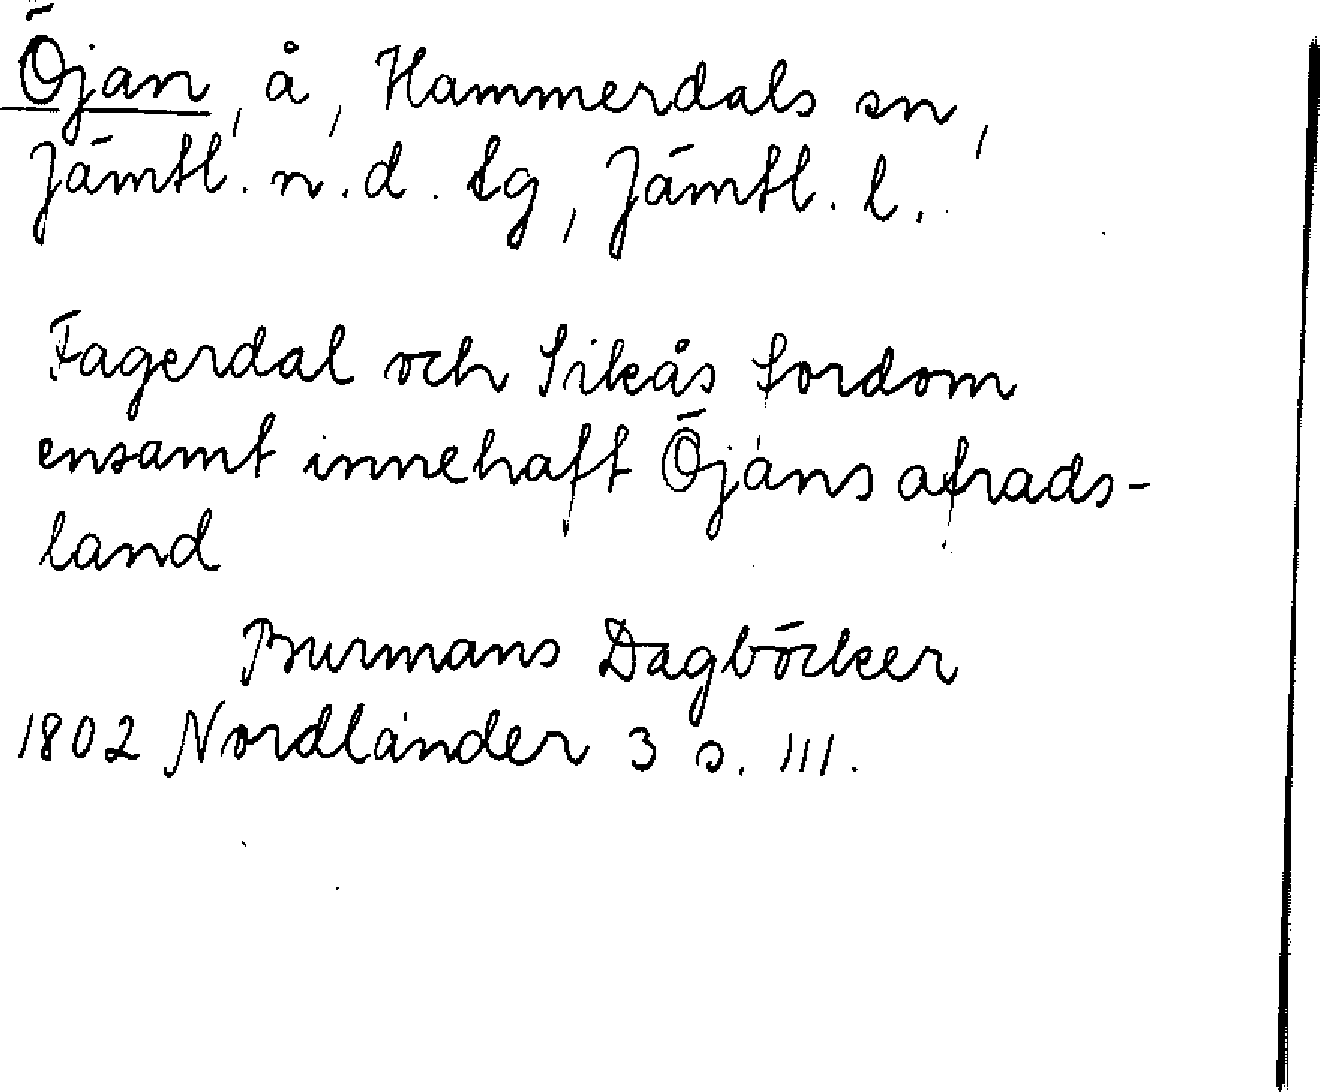 Öjan, å, Hammerdals sn,
Jämtl. n. d. tg, Jämtl. l.
Fagerdal och Sikås fordom
ensamt innehaft Öjåns afrads-
land
Burmans Dagböcker
1802 Nordlander 3 s. 111.